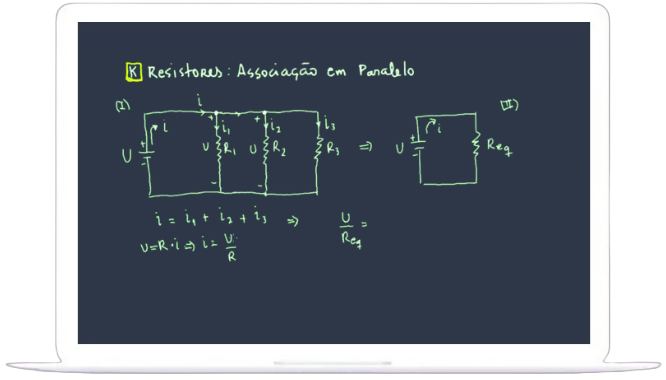 K Resistores: Associação em Paralelo
(I) i (II)
i i₁ i₂ i₃ i
U U R₁ U R₂ R₃ ⇒ U Req
i = i₁ + i₂ + i₃ ⇒ U/Req =
U=R·i ⇒ i = U/R